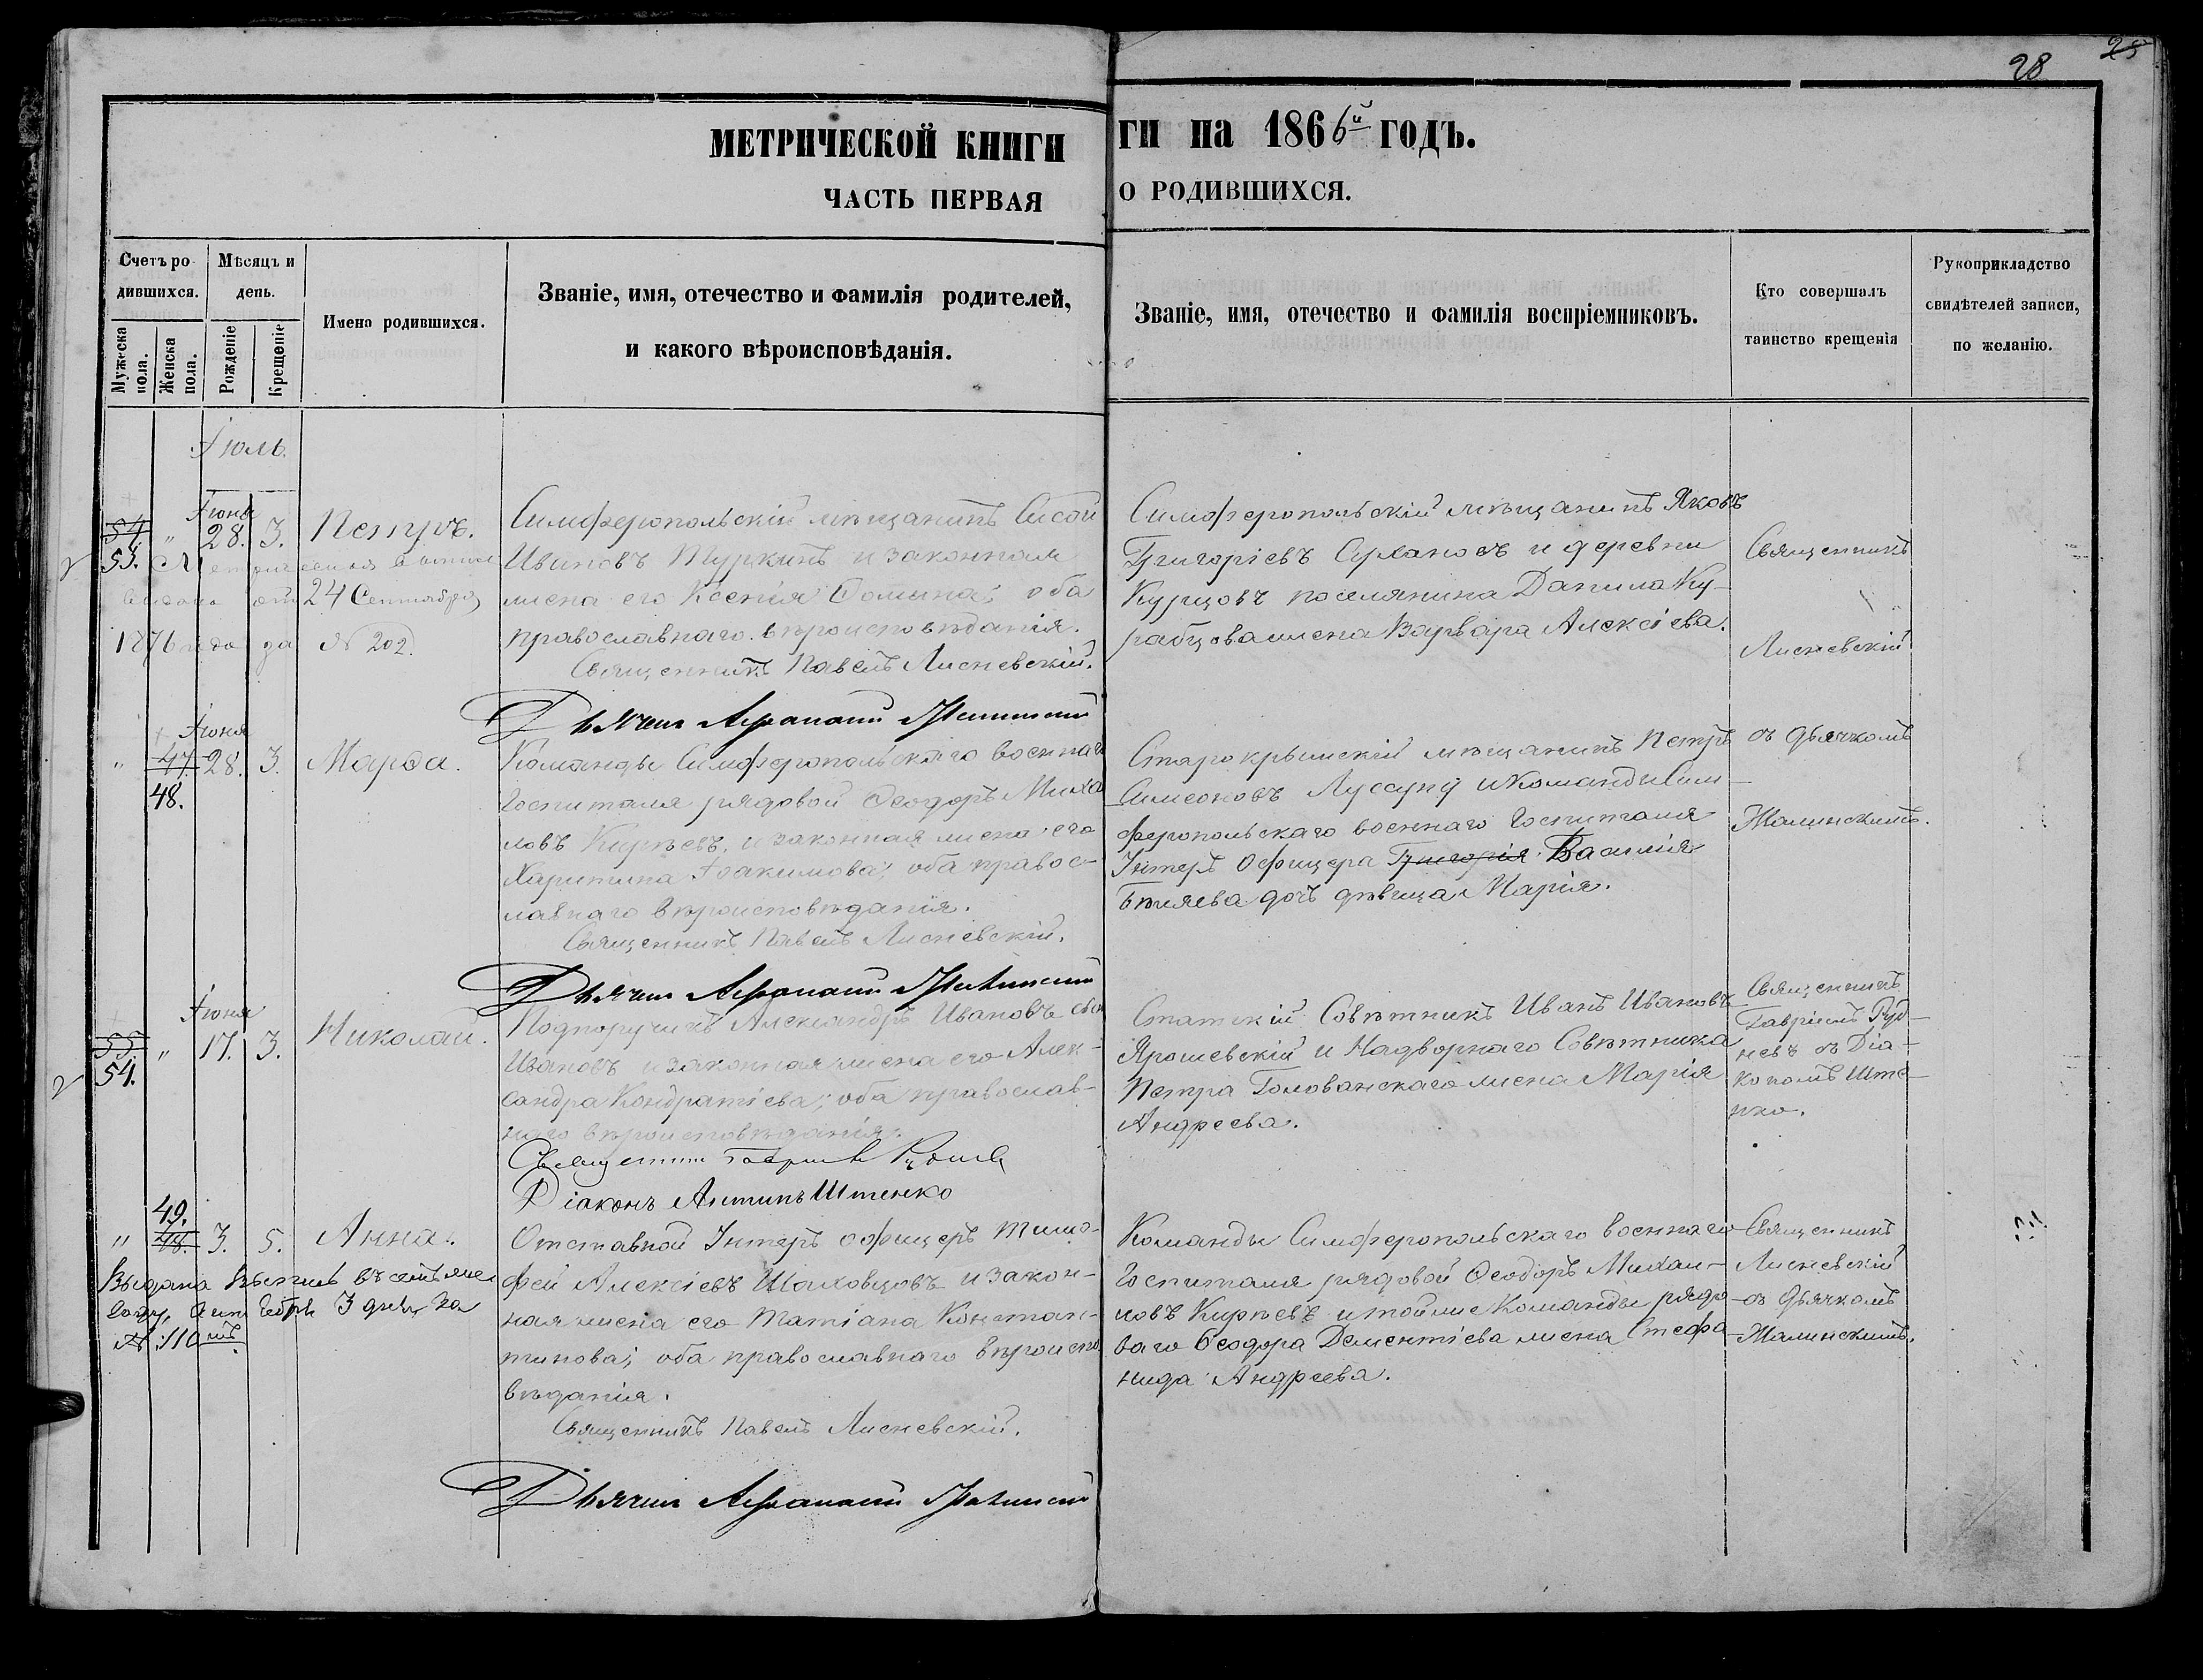 28 25
МЕТРИЧЕСКОЙ КНИГИ
ЧАСТЬ ПЕРВАЯ
ГИ на 1866й ГОДЪ.
О РОДИВШИХСЯ.
Счетъ родившихся.
Мужеска пола.
Женска пола.
Мѣсяцъ и день.
Рожденіе
Крещеніе
Имена родившихся.
Званіе, имя, отечество и фамилія родителей,
и какого вѣроисповѣданія.
Званіе, имя, отечество и фамилія воспріемниковъ.
Кто совершалъ
таинство крещенія
Рукоприкладство
свидѣтелей записи,
по желанію.
Іюль.
Іюня
54. " 28. 3. Петръ.
53.
24 Сентября
1876 года за № 202.
Симферопольскій мѣщанинъ Сисой
Ивановъ Туркинъ и законная
жена его Ксенія Ѳомина; оба
православнаго вѣроисповѣданія.
Священникъ Павелъ Лисневскій.
Симферопольскій мѣщанинъ Яковъ
Григоріевъ и деревни
Курцовъ поселянина Данила Ку-
рабцова жена Варвара Алексіева.
Священникъ
Лисневскій
Іюня
" 47. 28. 3. Марѳа.
48.
Команды Симферопольскаго военнаго
Госпиталя рядовой Ѳеодоръ Михаи
ловъ Кирѣевъ, и законная жена его
Харитина Іоакимова; оба правос-
лавнаго вѣроисповѣданія.
Священникъ Павелъ Лисневскій.
Старокрымскій мѣщанинъ Петръ
Симеоновъ и Команды Сим-
феропольскаго военнаго Госпиталя
Унтеръ Офицера Григорія Василія
Бѣляева дочь дѣвица Марія.
съ дьячкомъ
Жалинскимъ.
Іюня
55. " 17. 3. Николай.
54.
Подпоручикъ Александръ Ивановъ сынъ
Ивановъ и законная жена его Алек-
сандра Кондратіева; оба православ-
наго вѣроисповѣданія.
Діаконъ Антипъ Штенко
Статскій Совѣтникъ Иванъ Ивановъ
Ярошевскій и Надворнаго Совѣтника
Петра Голованскаго жена Марія
Андреева.
Священникъ
Гавріилъ Руд-
невъ съ Діа-
кономъШте-
нко.
49.
" 48. 3. 5. Анна.
№ 110мъ.
Отставной Унтеръ офицеръ Тимо-
фей Алексіевъ Шаховцовъ и закон-
ная жена его Татіана Констан-
тинова; оба православнаго вѣроиспо
вѣданія.
Священникъ Павелъ Лисневскій.
Команды Симферопольскаго военнаго
Госпиталя рядовой Ѳеодоръ Михаи-
ловъ Кирѣевъ и той же Команды рядо
ваго Ѳеодора Дементіева жена Стефа
нида Андреева.
Священникъ
Лисневскій
съ дьячкомъ
Жалинскимъ.